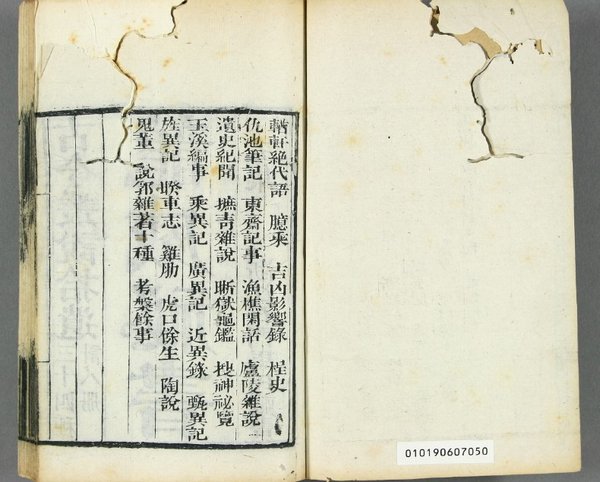 輶軒絶代語 臆乘 吉凶影響錄 桯史
仇池筆記 東齋記事 漁樵閑話 廬陵雜說
遺史紀聞 摭青雜說 晰獄龜鑑 搜神祕覽
玉溪編事 乘異記 廣異記 近異錄 甄異記
旌異記 睽車志 雞肋 虎口餘生 陶說
鬼董 說郛雜著十種 考槃餘事
010190607050